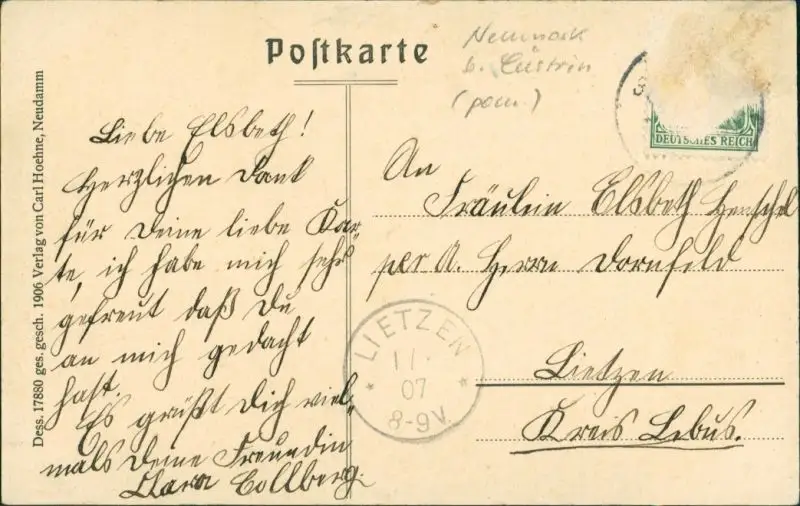 Postkarte
Neumark
b. Cüstrin
(pom.)
DEUTSCHES REICH
Dess. 17880 ges. gesch. 1906 Verlag von Carl Hoehne, Neudamm
Liebe Elsbeth!
Herzlichen Dank
für Deine liebe Kar-
te, ich habe mich sehr
gefreut daß Du
an mich gedacht
hast.
Es grüßt Dich viel-
mals Deine Freundin
Clara Collberg.
An
Fräulein Elsbeth Henschel
per A. Herrn Dornfeld
Lietzen
Kreis Lebus.
LIETZEN
11.
07
8-9V.